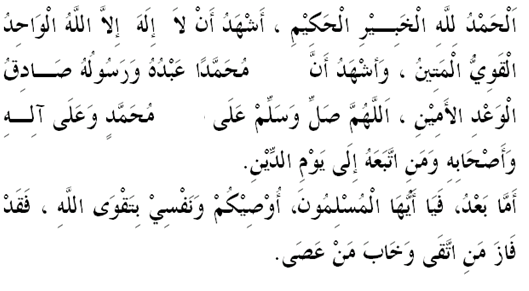 اَلْحَمْدُ للهِ الْخَبِـــيْرِ الْحَكِيْمِ ، أَشْهَدُ أَنْ لاَ إِلَهَ إِلاَّ اللهُ الْوَاحِدُ
الْقَوِيُّ الْمَتِينُ ، وَأَشْهَدُ أَنَّ مُحَمَّدًا عَبْدُهُ وَرَسُولُهُ صَـــادِقُ
الْوَعْدِ الأَمِيْنِ ، اَللَّهُمَّ صَلِّ وَسَلِّمْ عَلَى مُحَمَّدٍ وَعَلَى آلِـــهِ
وَأَصْحَابِهِ وَمَنِ اتَّبَعَهُ إِلَى يَوْمِ الدِّيْنِ.
أَمَّا بَعْدُ، فَيَا أَيُّهَا الْمُسْلِمُونَ، أُوْصِيْكُمْ وَنَفْسِيْ بِتَقْوَى اللهِ ، فَقَدْ
فَازَ مَنِ اتَّقَى وَخَابَ مَنْ عَصَى.